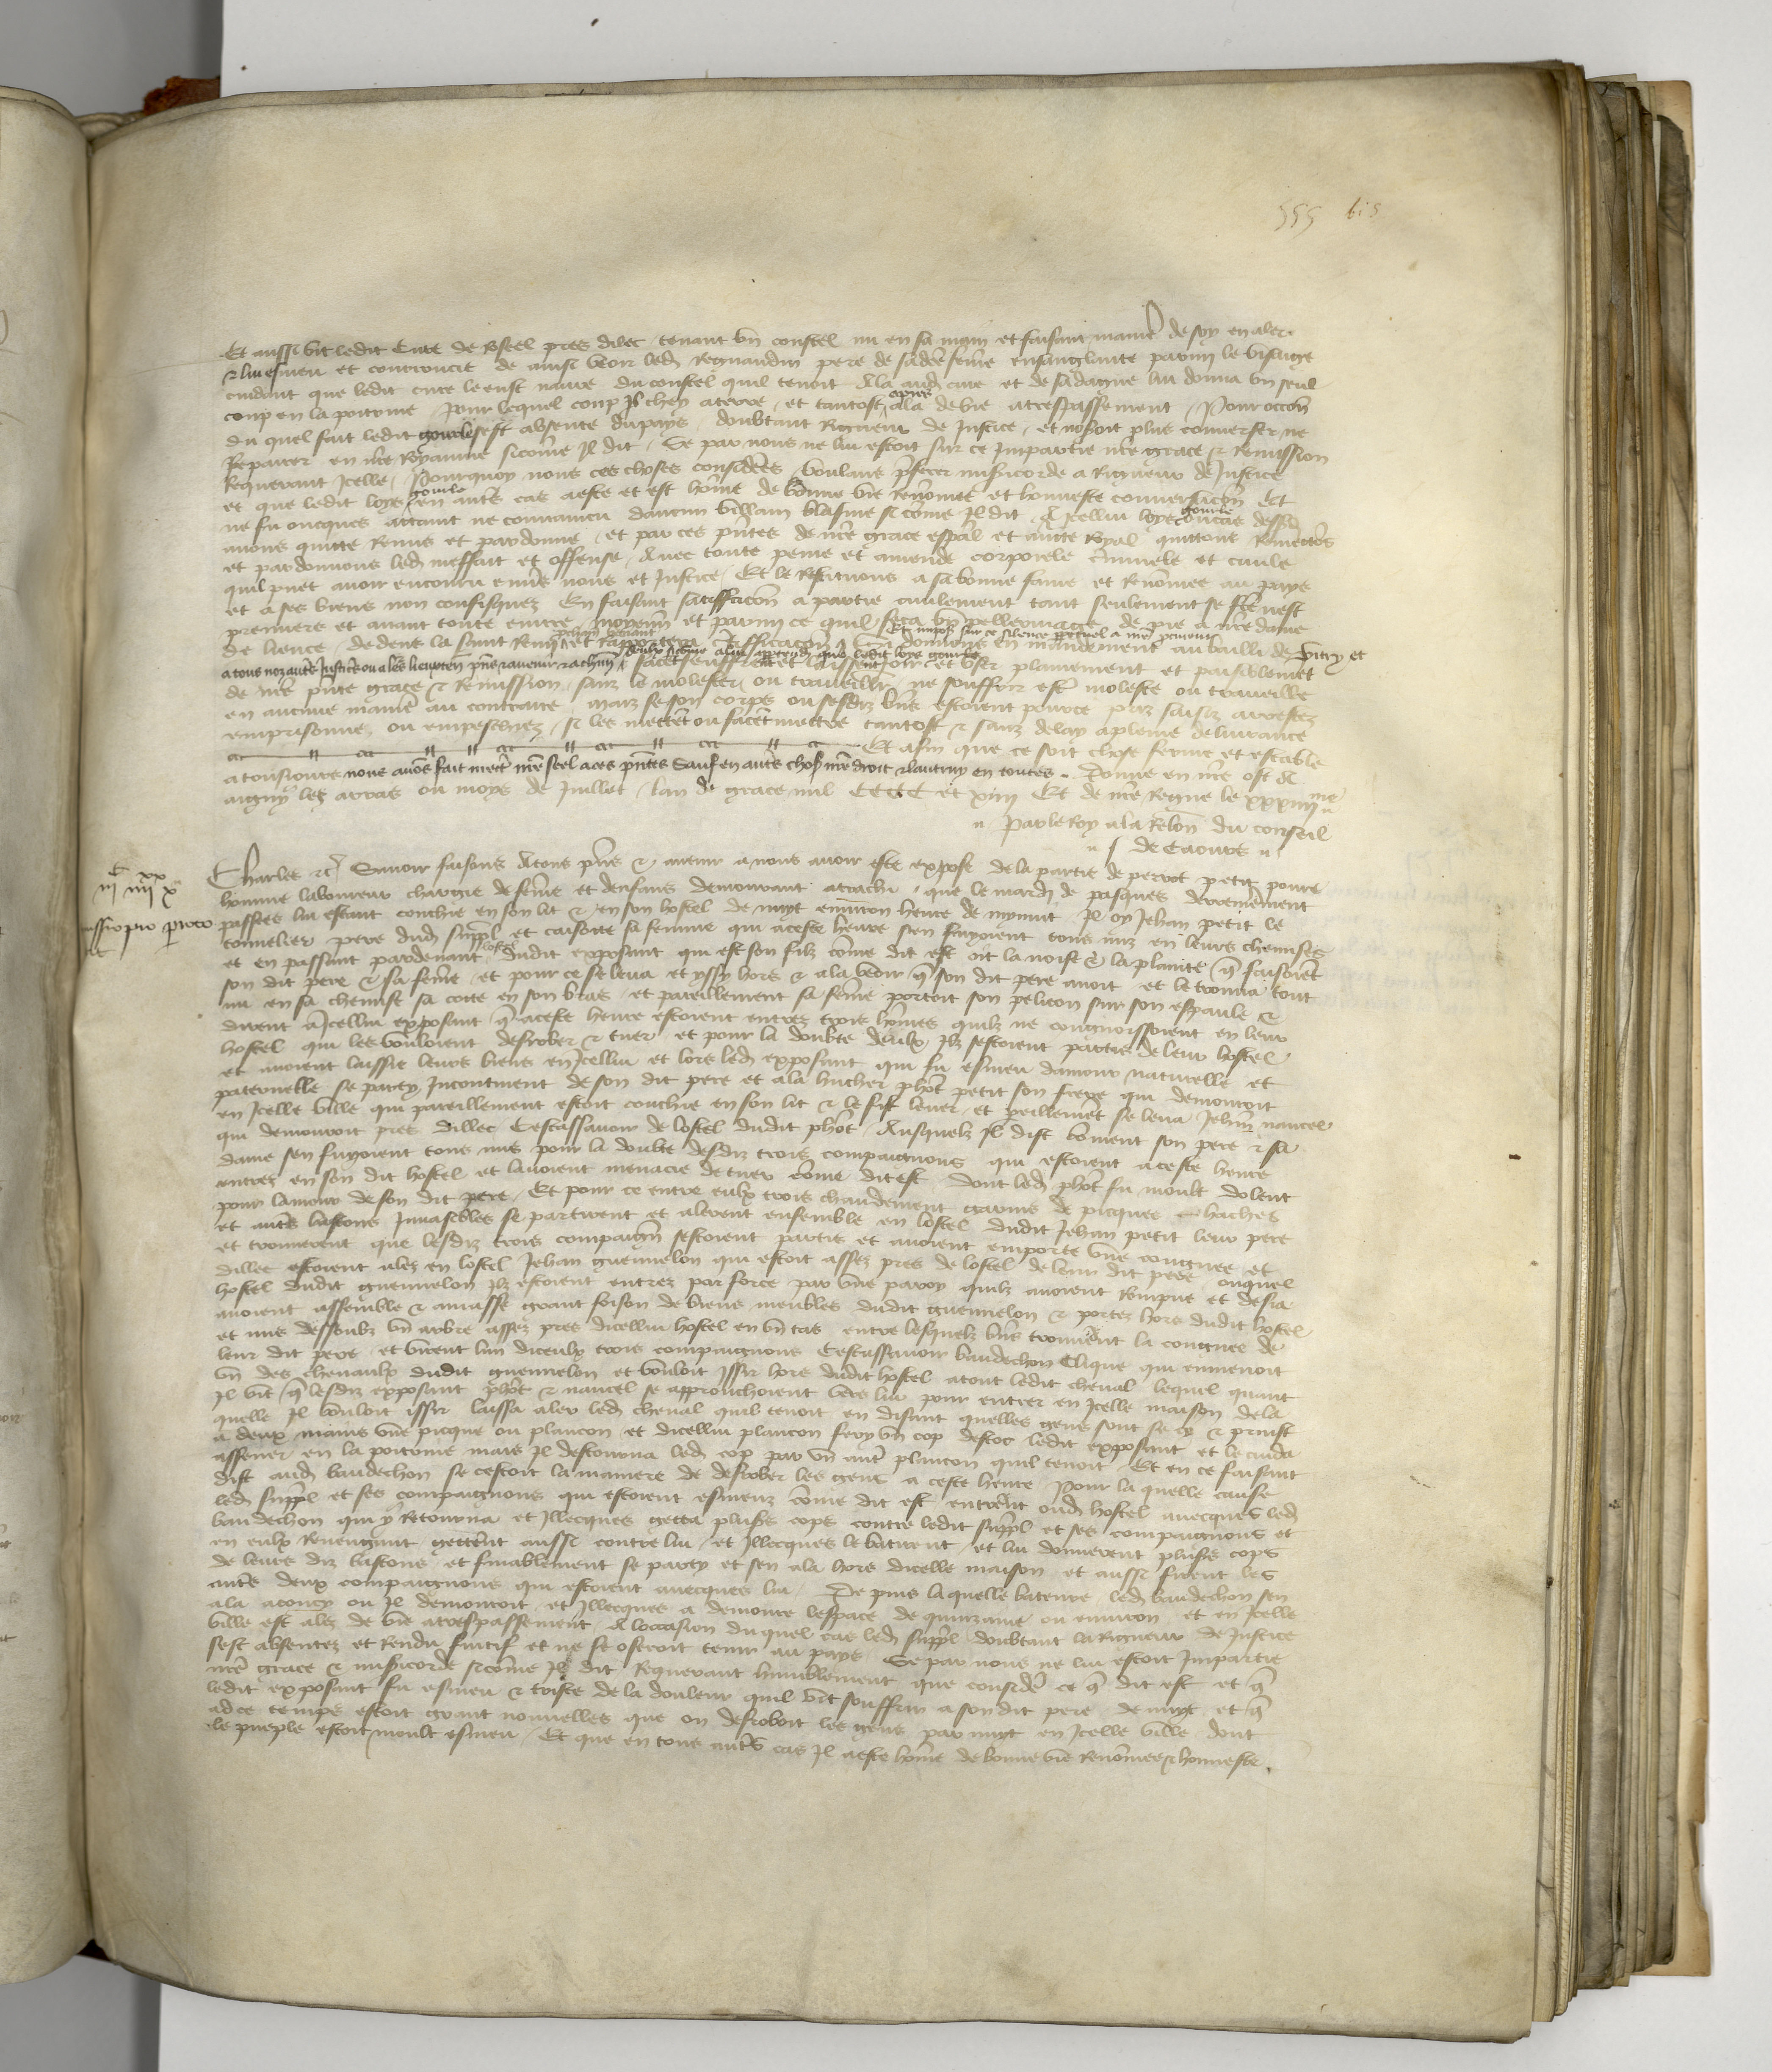 555 bis
Et aussi vit ledit Cure de Restel pres dilec tenant un coustel nu en sa main et faisant maniere de soy en aler
et lui esmeu et courroucie de ainsi veoir led Regnaudin pere de sadce feme ensanglante parmy le visaige
cuidant que ledit cure le eust navre du coustel quil tenoit Ala aud cure et de sa dague lui donna un seul
coup en la poitrine pour lequel coup Il chey a terre et tantost apres ala de vie a trespassement Pour occon
du quel fait ledit gourle sest absente du pays doubtant Rigueur de Justice et nosoit plus converser ne
Reparer en nre Royaume sicome Il dit Se par nous ne lui estoit sur ce Impartie nre grace et Remission
Requerant Icelle Pourquoy nous ces choses consideres voulans preferer misericorde a Rigueur de Justice
et que ledit loys gourle en autres cas a este et est home de bonne vie Renomee et honneste conversacon Et
ne fu oncques attaint ne convaincu daucun villain blasme si come Il dit A Icellui loys gourle ou cas dessusd
avons quitte Remis et pardonne et par ces pntes de nre grace espal et aucte Royal quittons Remettons
et pardonnons led meffait et offense Avec toute peine et amende corporele criminele et civile
quil puet avoir encouru envers nous et Justice Et le Restituons a sa bonne fame et Renomee au pays
et a ses biens non confisquez En faisant satisffacon a partie civilement tant seulement se fte nest
premiere et avant toute euvre moyennant et parmy ce quil fera un pellerinage de pie a nre dame
de lience dedens la saint Remy prouchain venant et Rapportera Certifficacon Et Imposons sur ce silence perpetuel a nre procureur Si donnons en mandement au bailli de vitry et
a tous noz autres Justiciers ou a leurs lieuxten pnes et avenir et a chun deulx sicome a lui appartendra que ledit loys gourle facent seuffrent et laissent Joir et user plainement et paisiblement
de nre pnte grace et Remission sanz le molester ou travaillier ne souffrir estre moleste ou travaille
en aucune maniere au contraire maiz se son corps ou sesdiz biens estoient pource prez saisiz arrestez
emprisonnez ou empeschiez si les mettent ou facent mettre tantost et sanz delay a pleine delivrance
Et afin que ce soit chose ferme et estable
a tousiours nous avons fait mectre nre scel a ces pntes Sauf en autres choses nre droit et lautruy en toutes Donne en nre ost A
aigny lez arras ou moys de Juillet lan de grace mil CCCC et xiiij Et de nre Regne le xxxiiij me
Par le Roy a la Relon du conseil
De Caours
iij C iiij xx x
Remissio pro Perroto petit
Charles etc Savoir faisons A tous pns et avenir a nous avoir este expose de la partie de perrot petit povre
homme laboureur chargie de feme et denfans demourant a rachi que le mardi de pasques derrenierement
passees lui estant couchie en son lit et en son hostel de nuyt environ heure de mynuit Il oy Jehan petit le
tonnelier pere dud suppl et caisote sa femme qui a ceste heure sen fuyoient tous nuz en leurs chemises
et en passant par devant lostel dudit exposant qui est son filz come dit est oit la noise et la plainte que faisoient
son dit pere et sa feme et pour ce se leva et yssy hors et ala veoir que son dit pere avoit et le trouva tout
nu en sa chemise sa cotte en son bras et pareillement sa feme portoit son pelicon sur son espaule et
dirent a Icellui exposant que a ceste heure estoient entrez trois homes quilz ne congnoissoient en leur
hostel qui les vouloient desrober et tuer et pour la doubte deulx Ilz sestoient partis de leur hostel
et avoient laissie leurs biens en Icellui et lors led exposant qui fu esmeu damour naturelle et
paternelle se party Incontinent de son dit pere et ala huchier phot petit son frere qui demouroit
en Icelle ville qui pareillement estoit couchie en son lit et le fist lever et peillement se leva Jehan nancel
qui demouroit pres dillec Cestassavoir de lostel dudit phot Ausquelz Il dist coment son pere et sa
dame sen fuyoient tous nus pour la doubte desdiz trois compaignons qui estoient a ceste heure
entrez en son dit hostel et lavoient menacie de tuer come dit est dont led phot fu moult dolent
pour lamour de son dit pere Et pour ce entre eulx trois chaudement garnis de picques haches
et autres bastons Invasibles se partirent et alerent ensemble en lostel dudit Jehan petit leur pere
et trouverent que lesdiz trois compaignons sestoient partis et avoient emporte une congnee et
dillec estoient alez en lostel Jehan guennelon qui estoit assez pres de lostel de leur dit pere ouquel
hostel dudit guennelon Ilz estoient entrez par force par une paroy quilz avoient Rompue et desia
avoient assemble et amasse grant foison de biens meubles dudit guennelon et portez hors dudit hostel
et mis dessoubz un arbre assez pres dicellui hostel en un tas entre lesquelz biens trouverent la congnee de
leur dit pere et virent lun diceulx trois compaignons Cestassavoir baudechon Clique qui emmenoit
un des chevaulx dudit guennelon et vouloit Issir hors dudit hostel atout ledit cheval lequel quant
Il vit que lesdiz exposant phot et nancel se approuchoient vers lui pour entrer en Icelle maison de la
quelle Il vouloit issir laissa aler led cheval quil tenoit en disant quelles gens sont se cy et prinst
a deux mains une picque ou plancon et dicellui plancon fery un cop destoc ledit exposant et le cuida
assener en la poitrine mais Il destourna led cop par un autre plancon quil tenoit Et en ce faisant
dist aud baudechon se cestoit la maniere de desrober les gens a ceste heure Pour la quelle cause
led suppl et ses compaignons qui estoient esmeuz come dit est entrerent oud hostel avecques led
baudechon qui y Retourna et Illecques getta plusrs cops contre ledit suppl et ses compaignons et
en eulx Revengant getterent aussi contre lui et Illecques le batirent et lui donnerent plusrs cops
de leurs diz bastons et finablement se party et sen ala hors dicelle maison et aussi firent les
autres deux compaignons qui estoient avecques lui De puis laquelle bateure led baudechon sen
ala a couy ou Il demouroit et Illecques a demoure lespace de quinzaine ou environ et en Icelle
ville est alez de vie a trespassement A loccasion du quel cas led suppl doubtant la Rigueur de Justice
sest absentez et Rendu fuitif et ne se oseroit tenir au pays Se par nous ne lui estoit Impartie
nre grace et misericorde sicome Il dit Requerant humblement que considere ce que dit est et que
ledit exposant fu esmeu et triste de la douleur quil vit souffrir a son dit pere de nuyt et que
ad ce temps estoit grant nouvelles que on desroboit les gens par nuyt en Icelle ville dont
le pueple estoit moult esmeu Et que en tous autres cas Il a este home de bonne vie Renomee et honneste